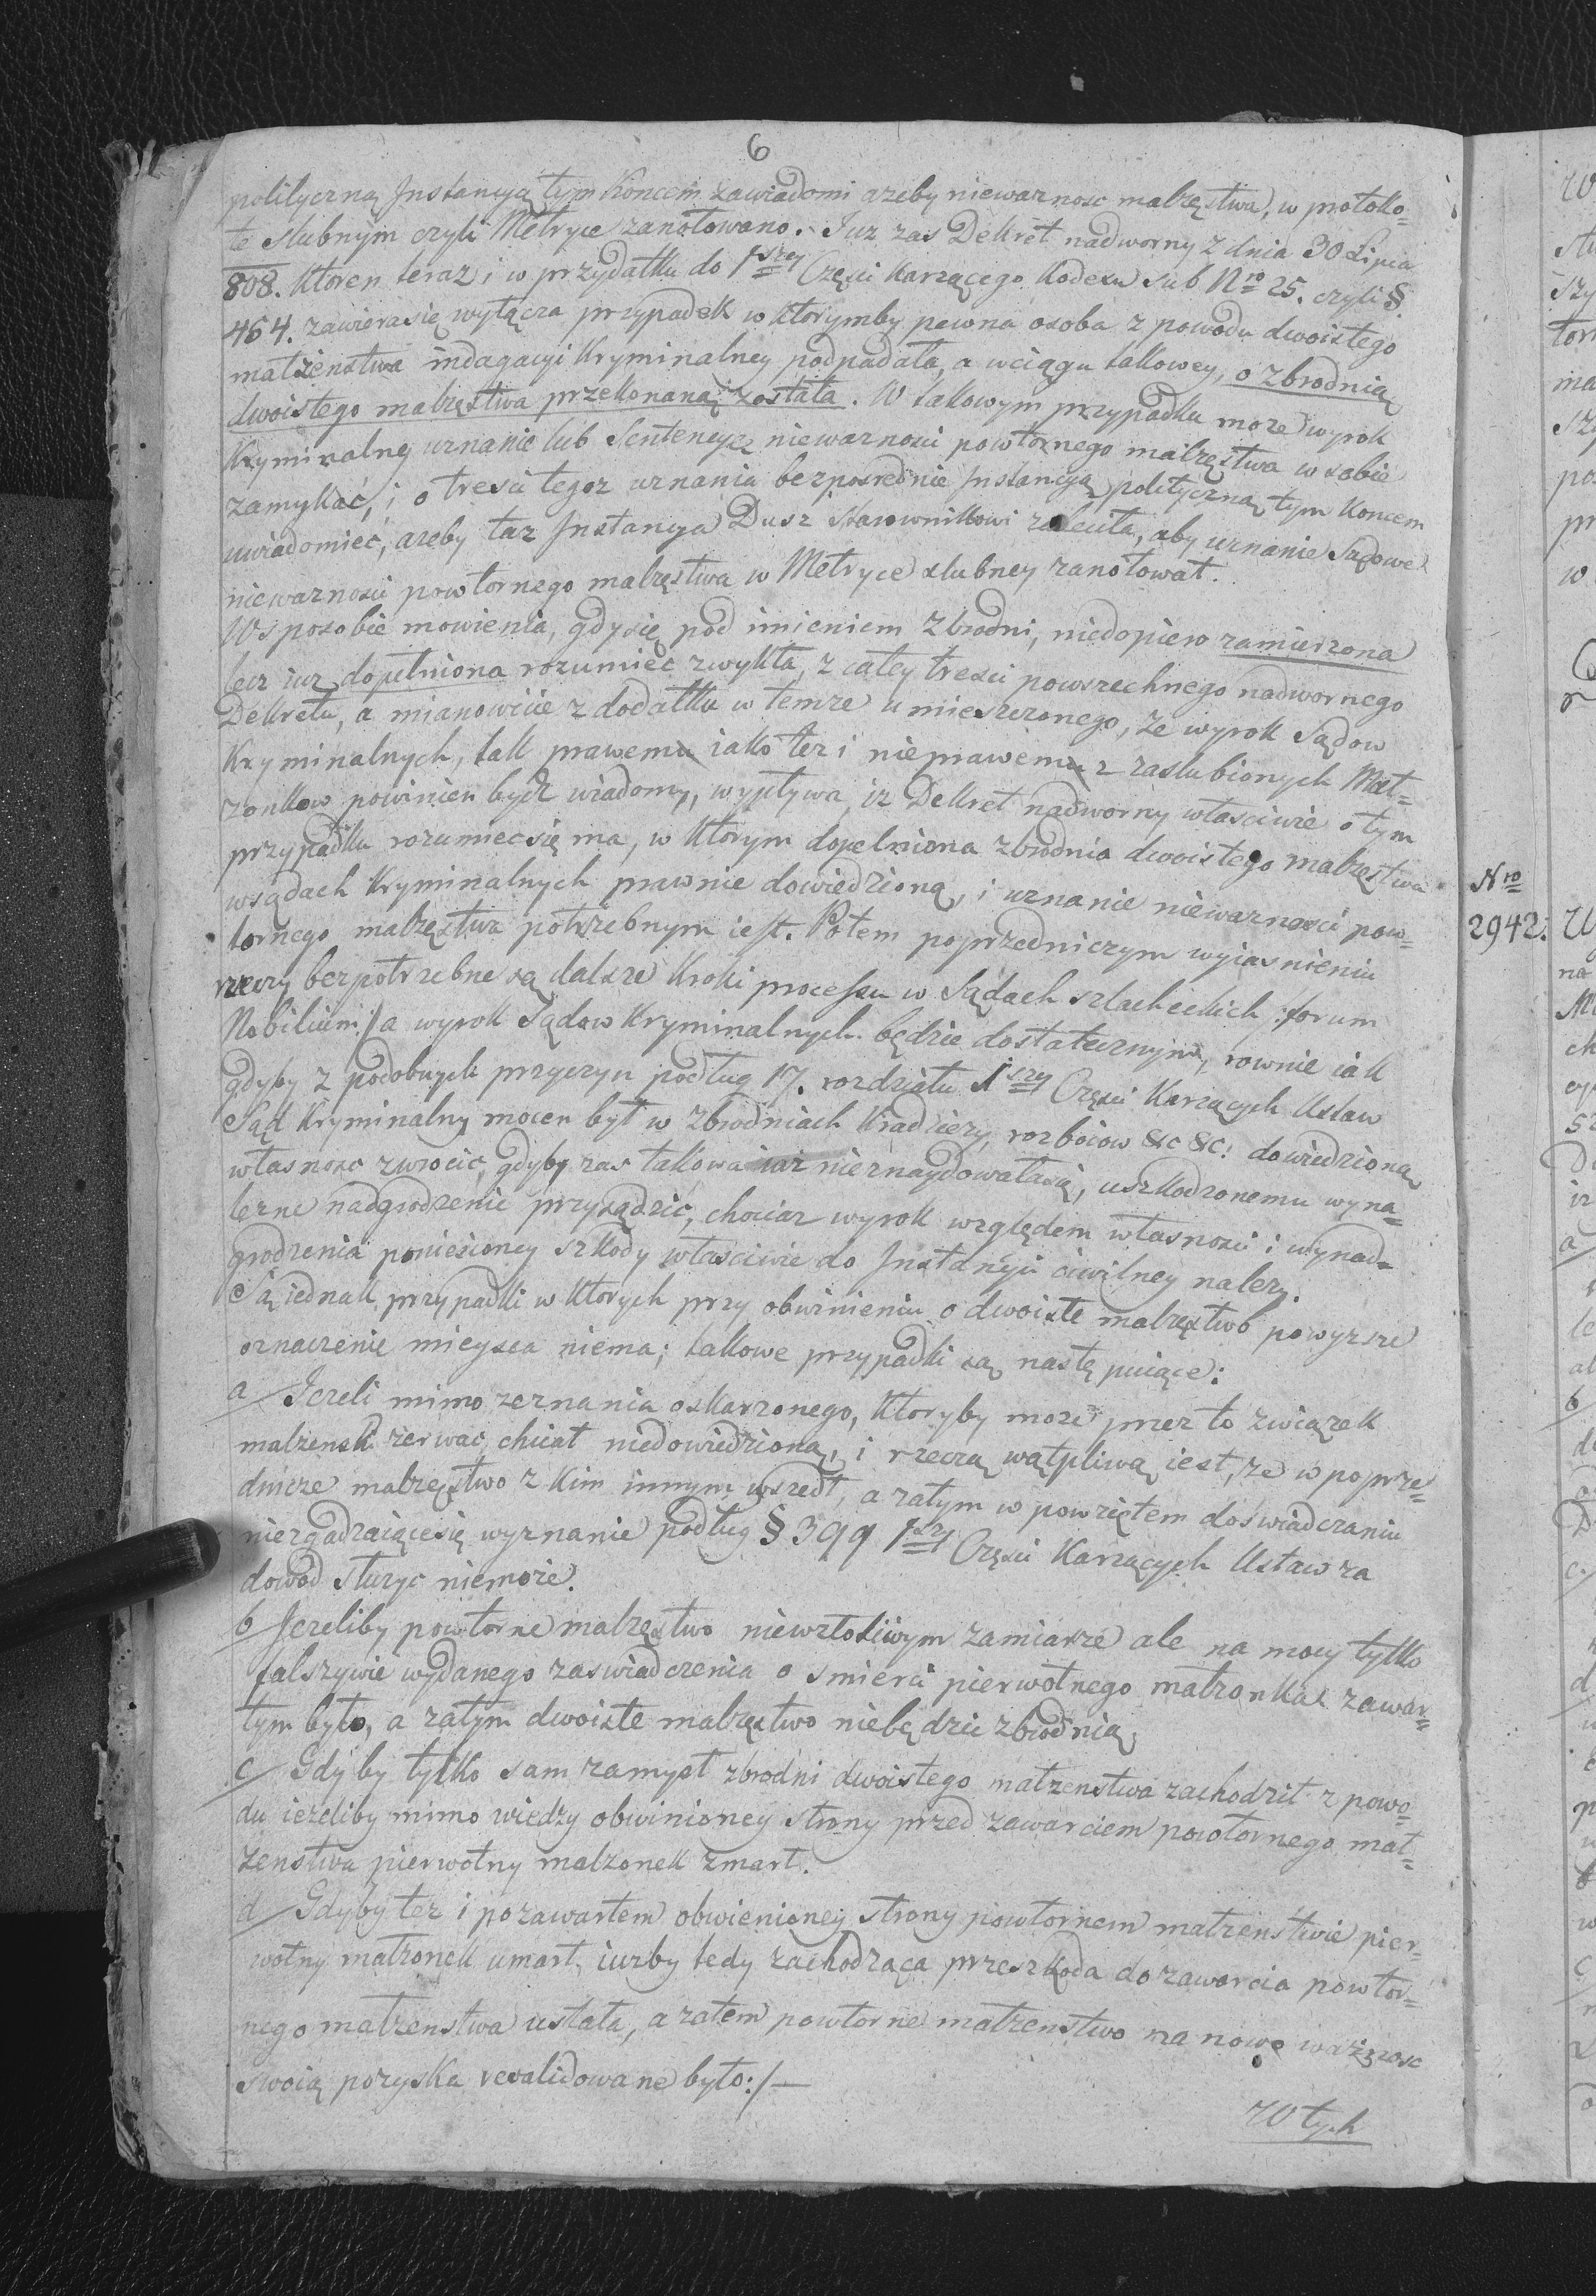 6
polityczną Instancyą tym Koncem zawiadomi azeby niewaznosc małzęstwa, w protoko=
le slubnym czyli Metryce zanotowano. Iuz zas Dekret nadworny z dnia 30 Lipca
808. Ktoren teraz i w przydatku do 1szey Częsci Karzącego Kodexu sub Nro 25. czyli §.
464. zawiera się wyłącza przypadek w ktorymby pewna osoba z powodu dwoistego
małzenstwa indagacyi Kryminalney podpadała, a wciągu takowey, o zbrodnią
dwoistego malzęstwa przekonaną została. W takowym przypadku moze wyrok
Kryminalny uznanie lub Sentencyę niewaznosci powtornego malzęstwa w sobie
zamykać, i o tresci tegoz uznania bezposrednie Instancyą polityczną tym Koncem
uwiadomieć, azeby taz Instancya Dusz starownikowi zaleciła, aby uznanie Sądowe
niewaznosci powtornego malzęstwa w Metryce slubney zanotował.
W sposobie mowienia, gdy się pod imieniem Zbrodni, niedopiero zamierzona
lecz iuz dopełniona rozumieć zwykła, z całey tresci powszechnego nadwornego
Dekretu, a mianowicie z dodatku w temze umieszczonego, ze wyrok Sądow
Kryminalnych, tak prawemu iako tez i nieprawemu z zaslubionych Mał=
zonkow powinien bydz wiadomy, wypływa, iz Dekret nadworny własciwie o tym
przypadku rozumiec się ma, w ktorym dopelniona zbrodnia dwoistego malzęstwa
wsądach Kryminalnych prawnie dowiedzioną, i uznanie niewaznosci pow=
tornego malzęstwa potrzebnym iest. Potem poprzedniczym wyiasnieniu
rzeczy bezpotrzebne są dalsze Kroki processu w Sądach szlacheckich /: forum
Nobilium :/ a wyrok Sądow Kryminalnych będzie dostatecznym, rownie iak
gdyby z podobnych przyczyn podług 17. rozdziału 1szey Częsci Karzących Ustaw
Sąd Kryminalny mocen był w zbrodniach Kradziezy, rozboiow &c &c: dowiedzioną
własnosc zwrocic, gdyby zas takowa iuz nieznaydowała się, uszkodzonemu wyna=
lezne nadgrodzenie przysądzić, chociaz wyrok względem własnosci i wynad=
grodzenia poniesioney szkody własciwie do Instancyi ciwilney nalezy.
Są iednak przypadki w ktorych przy obwinieniu o dwoiste malzęstwo powyzsze
oznaczenie mieysca niema; takowe przypadki są następuiące:
a/ Iezeli mimo zeznania oskarzonego, Ktoryby moze przez to związek
malzenski zerwac chciał niedowiedzioną, i rzeczą wątpliwą iest, ze w poprze=
dnicze malzęstwo z kim innym wszedł, a zatym w powziętem doswiadczaniu
niezgadzaiące się wyznanie podług § 399 1szey Częsci Karzących Ustaw za
dowod sluzyc niemoze.
b/ Iezeliby powtorne malzęstwo niewzłosliwym zamiarze ale na mocy tylko
falszywie wydanego zaswiadczenia o smierci pierwotnego małzonka zawar=
tym było, a zatym dwoiste malzęstwo niebędzie zbrodnią,
c/ Gdyby tylko sam zamysł zbrodni dwoistego małzenstwa zachodził z powo=
du iezeliby mimo wiedzy obwinioney strony przed zawarciem powtornego mał=
zenstwa pierwotny malzonek zmarł.
d/ Gdyby tez i pozawartem obwienioney strony powtornem małzenstwie pier=
wotny małzonek umarł, iuzby tedy zachodząca przeszkoda do zawarcia powtor=
nego małzenstwa ustała, a zatem powtorne małzenstwo na nowo ważnosc
swoią pozyska revalidowane było :/ —
W tych
Nro
2942.